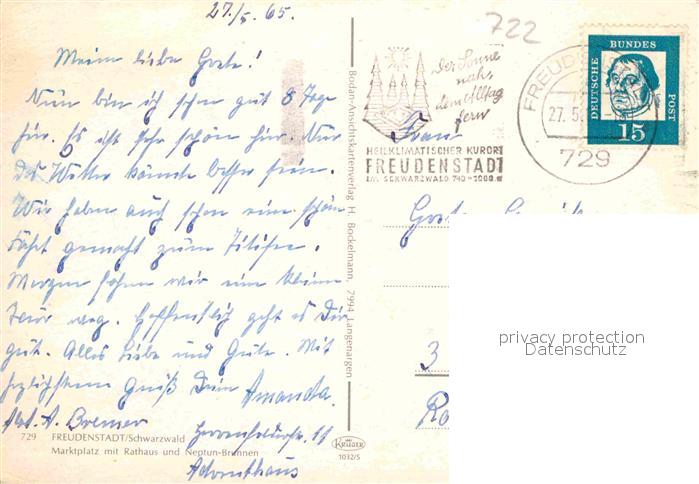 27./5. 65.
Meine liebe Grete!
Nun bin ich schon gut 8 Tage
hier. Es ist sehr schön hier. Nur
das Wetter könnte besser sein.
Wir haben auch schon eine schöne
Fahrt gemacht zum Titisee.
Morgen fahren wir eine kleine
Tour weg. Hoffentlich geht es Dir
gut. Alles Liebe und Gute. Mit
herzlichstem Gruß Deine Amanda.
Abs. A. Bremer
11
Adventhaus
729 FREUDENSTADT/Schwarzwald
Marktplatz mit Rathaus und Neptun-Brunnen
Bodan-Ansichtskartenverlag H. Bockelmann, 7994 Langenargen
KRÜGER
1032/5
722
Der Sonne
nah,
dem Alltag
fern
HEILKLIMATISCHER KURORT
FREUDENSTADT
IM SCHWARZWALD 740-1000 m
27. 5.
729
DEUTSCHE BUNDESPOST
15
Frau
3
privacy protection
Datenschutz